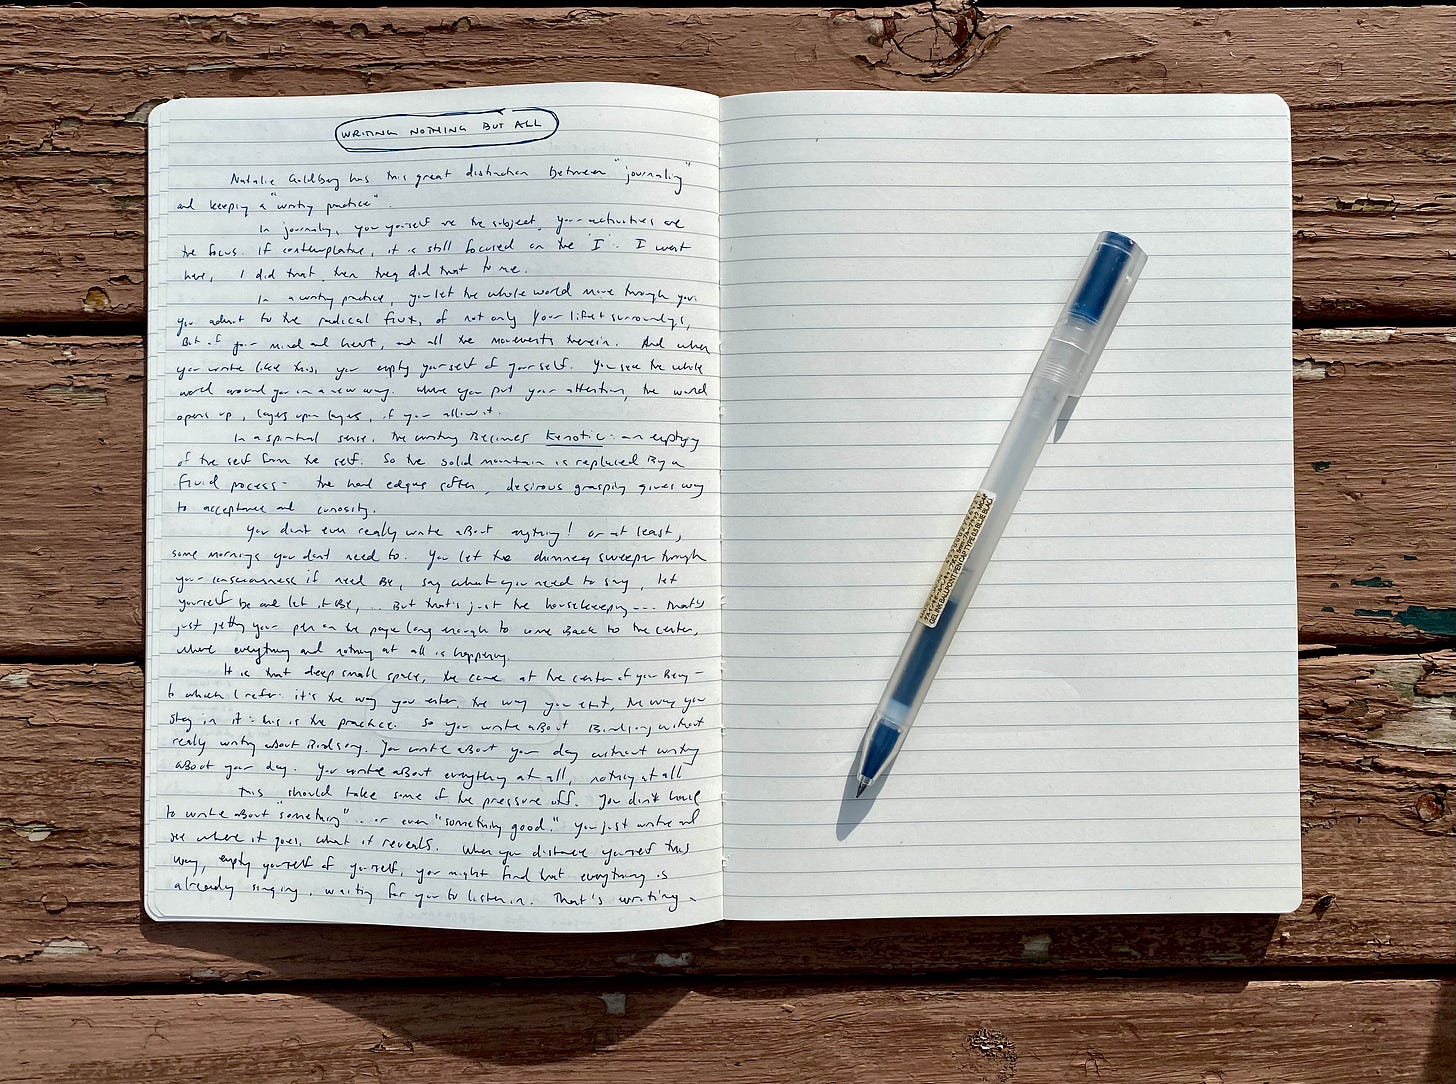 WRITING NOTHING BUT ALL
Natalie Goldberg has this great distinction between "journaling"
and keeping a "writing practice".
In journaling, you yourself are the subject, your activities are
the focus. If contemplative, it is still focused on the 'I'. I went
here, I did that, then they did that to me.
In a writing practice, you let the whole world move through you.
You admit to the radical flux, of not only your life + surroundings,
But of your mind and heart, and all the movements therein. And when
you write like this, you empty yourself of yourself. You see the whole
world around you in a new way. Where you put your attention, the world
opens up, layers upon layers, if you allow it.
In a spiritual sense, the writing Becomes Kenotic: an emptying
of the self from the self. So the solid mountain is replaced By a
fluid process - the hard edges soften, desirous grasping gives way
to acceptance and curiosity.
You don't even really write about anything! or at least,
some mornings you don't need to. You let the chimney sweeper through
your consciousness if need Be, say what you need to say, let
yourself be and let it Be, ... But that's just the housekeeping --- that's
just getting your pen on the page long enough to come Back to the center,
where everything and nothing at all is happening.
It is that deep small space, the cave at the center of your Being -
to which I refer: it's the way you enter, the way you exit, the way you
stay in it - this is the practice. So you write about Birdsong without
really writing about Birdsong. You write about your day without writing
about your day. You write about everything at all, nothing at all
This should take some of the pressure off. You don't have
to write about "something".. or even "something good." You just write and
see where it goes, what it reveals. When you distance yourself this
way, empty yourself of yourself, you might find that everything is
already singing, waiting for you to listen in. That's writing.
GEL INK BALLPOINT PEN CAP TYPE 0.5 BLUE BLACK